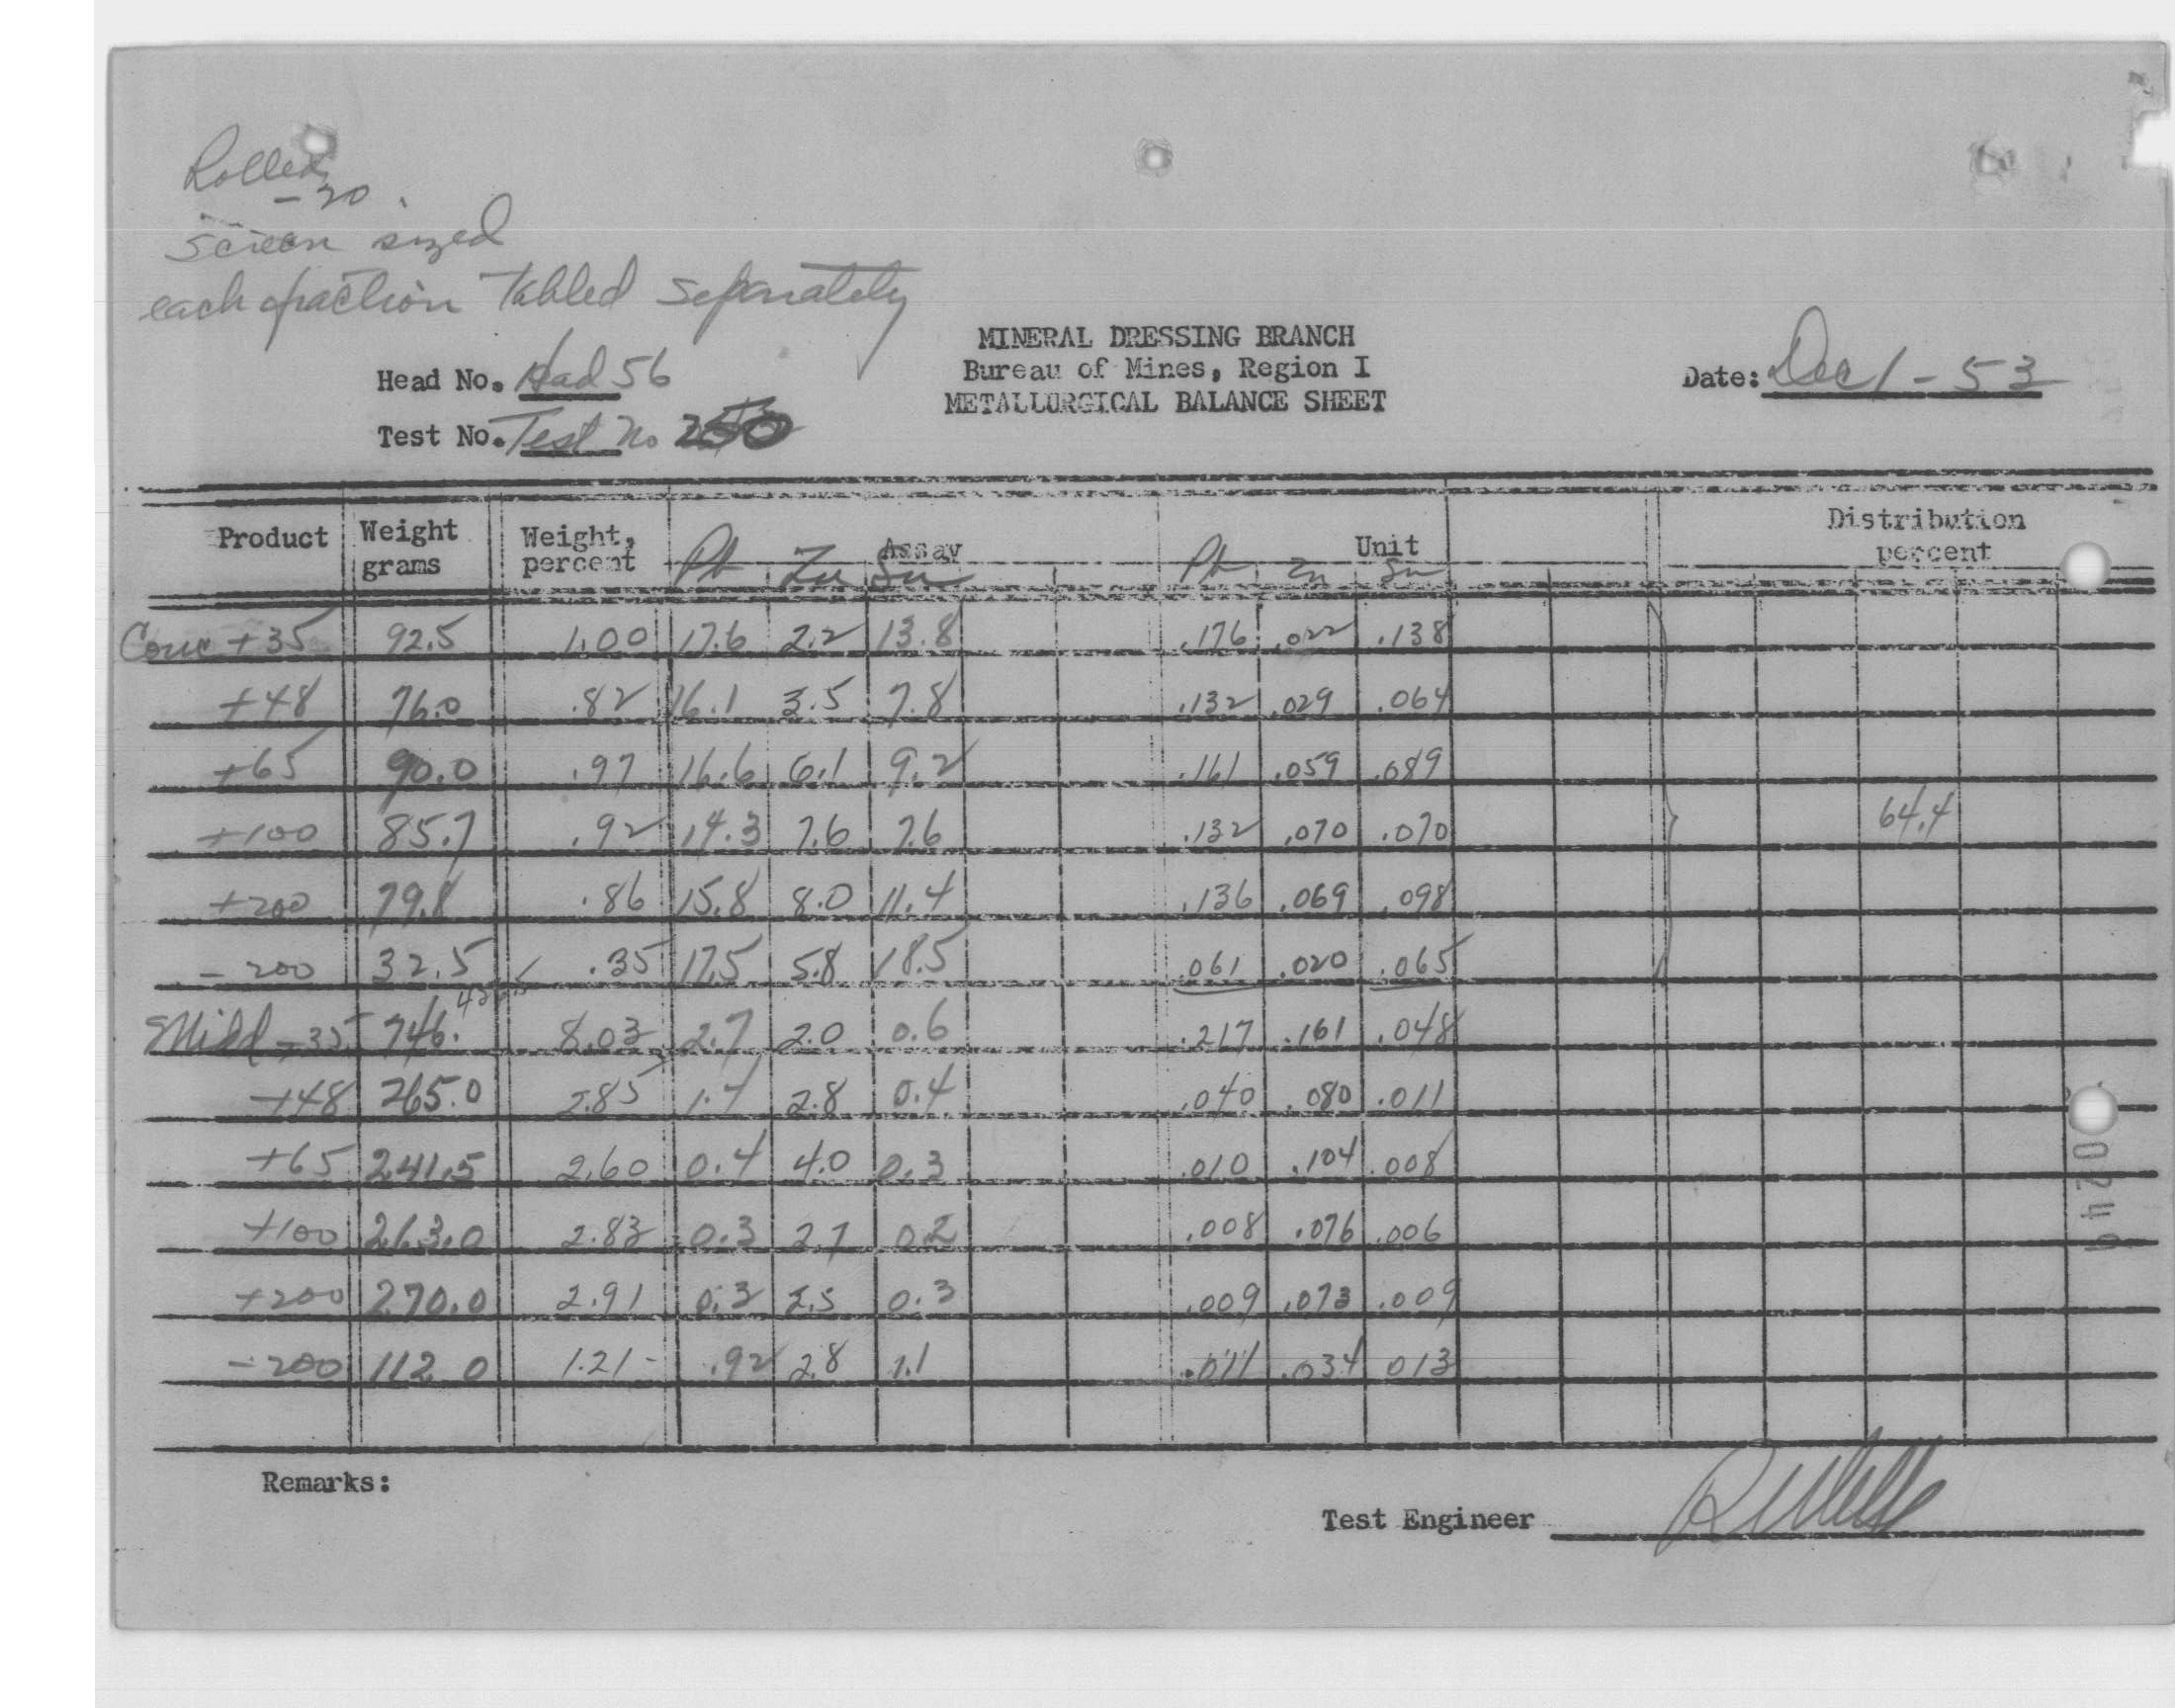 Rolled
-20
Screen sized
each fraction tabled separately
MINERAL DRESSING BRANCH
Bureau of Mines, Region I
METALLURGICAL BALANCE SHEET
Head No. Had 56
Date: Dec 1 - 53
Test No. Test No
Product Weight grams Weight, percent Assay Unit Distribution percent
Pb Zn Sn Pb Zn Sn
Conc +35 92.5 1.00 17.6 2.2 13.8 .176 .022 .138
+48 76.0 .82 16.1 3.5 7.8 .132 .029 .064
+65 90.0 .97 16.6 6.1 9.2 .161 .059 .089
+100 85.7 .92 14.3 7.6 7.6 .132 .070 .070 64.4
+200 79.8 .86 15.8 8.0 11.4 .136 .069 .098
-200 32.5 .35 17.5 5.8 18.5 .061 .020 .065
Midd +35 746. 8.03 2.7 2.0 0.6 .217 .161 .048
+48 265.0 2.85 1.4 2.8 0.4 .040 .080 .011
+65 241.5 2.60 0.4 4.0 0.3 .010 .104 .008
+100 263.0 2.83 0.3 2.7 0.2 .008 .076 .006
+200 270.0 2.91 0.3 2.5 0.3 .009 .073 .009
-200 112.0 1.21 .92 2.8 1.1 .011 .034 013
Remarks:
Test Engineer